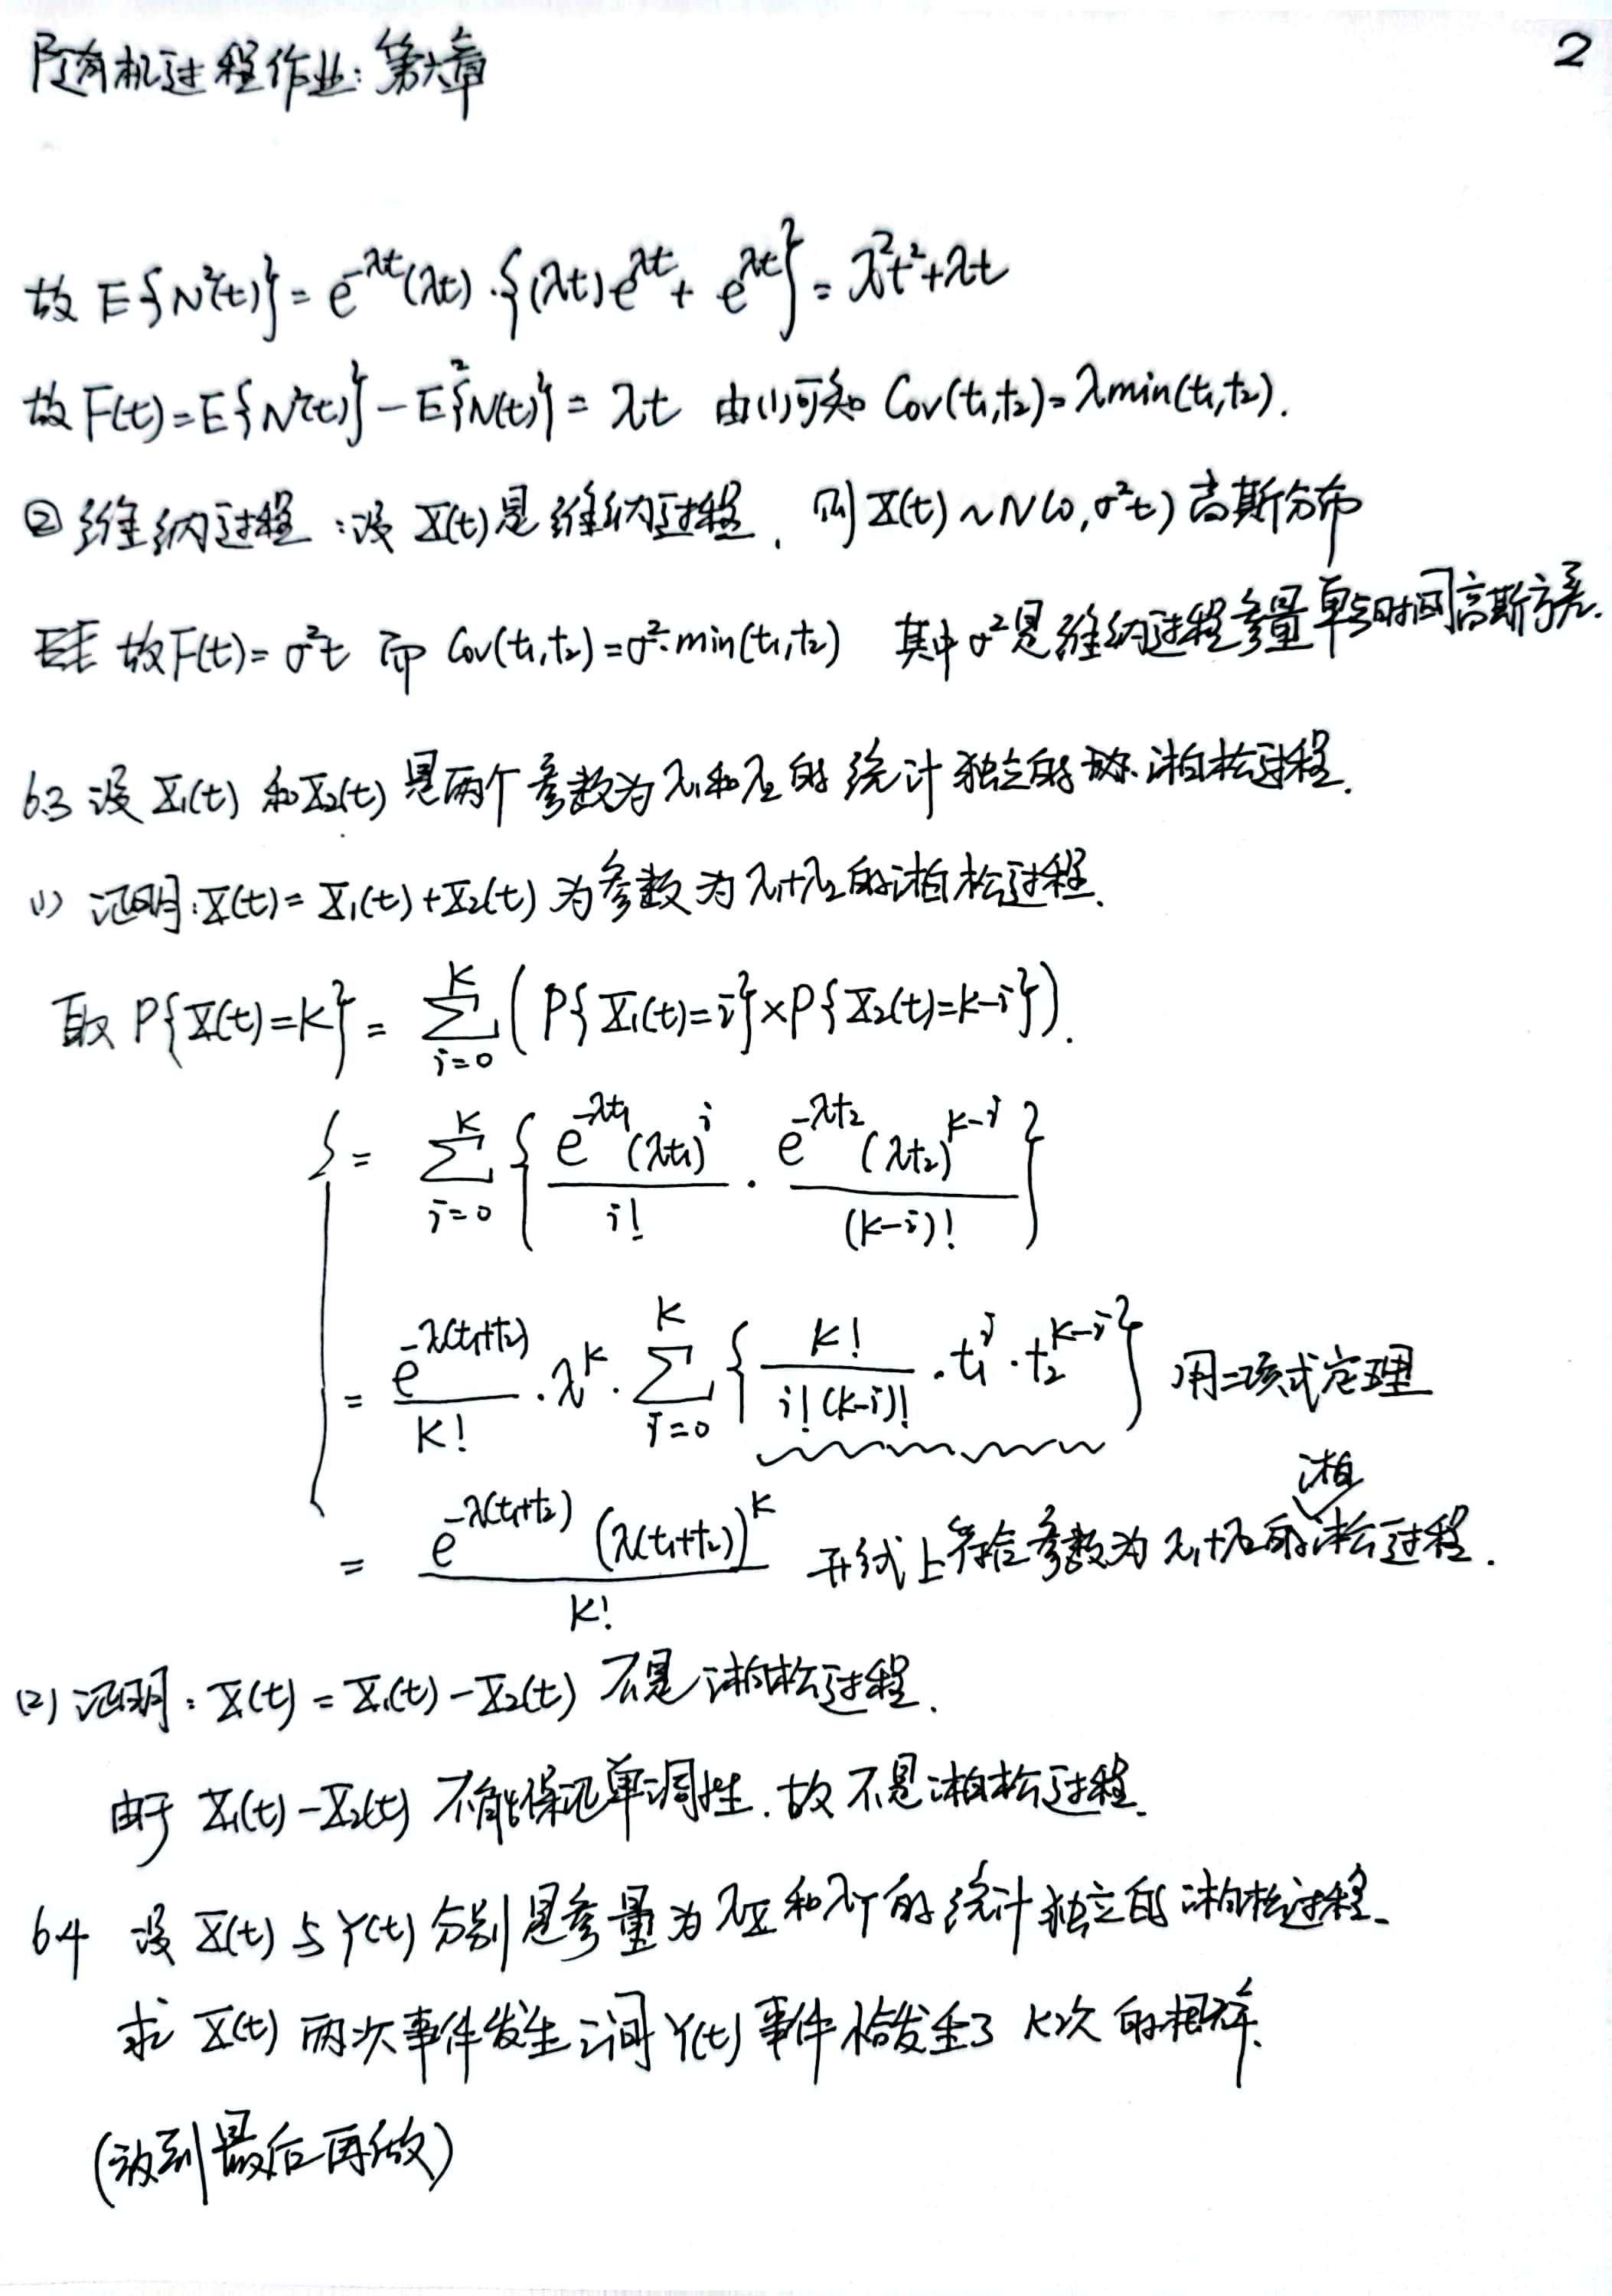 随机过程作业：第六章
2
故 E{N²(t)} = e^{-λt}(λt)·{(λt)e^{λt} + e^{λt}} = λ²t²+λt
故 F(t)=E{N²(t)} - E²{N(t)} = λt 由(1)可知 Cov(t₁,t₂)=λmin(t₁,t₂).
② 维纳过程：设 X(t)是维纳过程，则 X(t)~N(0,σ²t) 高斯分布
故F(t)=σ²t 而 Cov(t₁,t₂)=σ²·min(t₁,t₂) 其中σ²是维纳过程参量单位时间高斯方差.
6.3 设 X₁(t) 和X₂(t) 是两个参数为λ₁和λ₂的统计独立的泊松过程.
(1) 证明:X(t)=X₁(t)+X₂(t) 为参数为λ₁+λ₂的泊松过程.
取 P{X(t)=K} = \sum_{i=0}^{K} (P{X₁(t)=i}×P{X₂(t)=k-i}).
= \sum_{i=0}^{K} { \frac{e^{-λt₁}(λt₁)^i}{i!} · \frac{e^{-λt₂}(λt₂)^{k-i}}{(k-i)!} }
= \frac{e^{-λ(t₁+t₂)}}{K!} · λ^K · \sum_{i=0}^{K} { \frac{K!}{i!(k-i)!} · t₁^i · t₂^{k-i} } 用二项式定理
= \frac{e^{-λ(t₁+t₂)} (λ(t₁+t₂))^K}{K!} 形式上符合参数为λ₁+λ₂的泊松过程.
(2) 证明：X(t) = X₁(t)-X₂(t) 不是泊松过程.
由于 X₁(t)-X₂(t) 不能保证单调性.故不是泊松过程.
6.4 设 X(t) 与 Y(t) 分别是参量为λ_X和λ_Y的统计独立的泊松过程.
求 X(t) 两次事件发生之间 Y(t) 事件恰发生了 K次 的概率.
(放到最后再做)